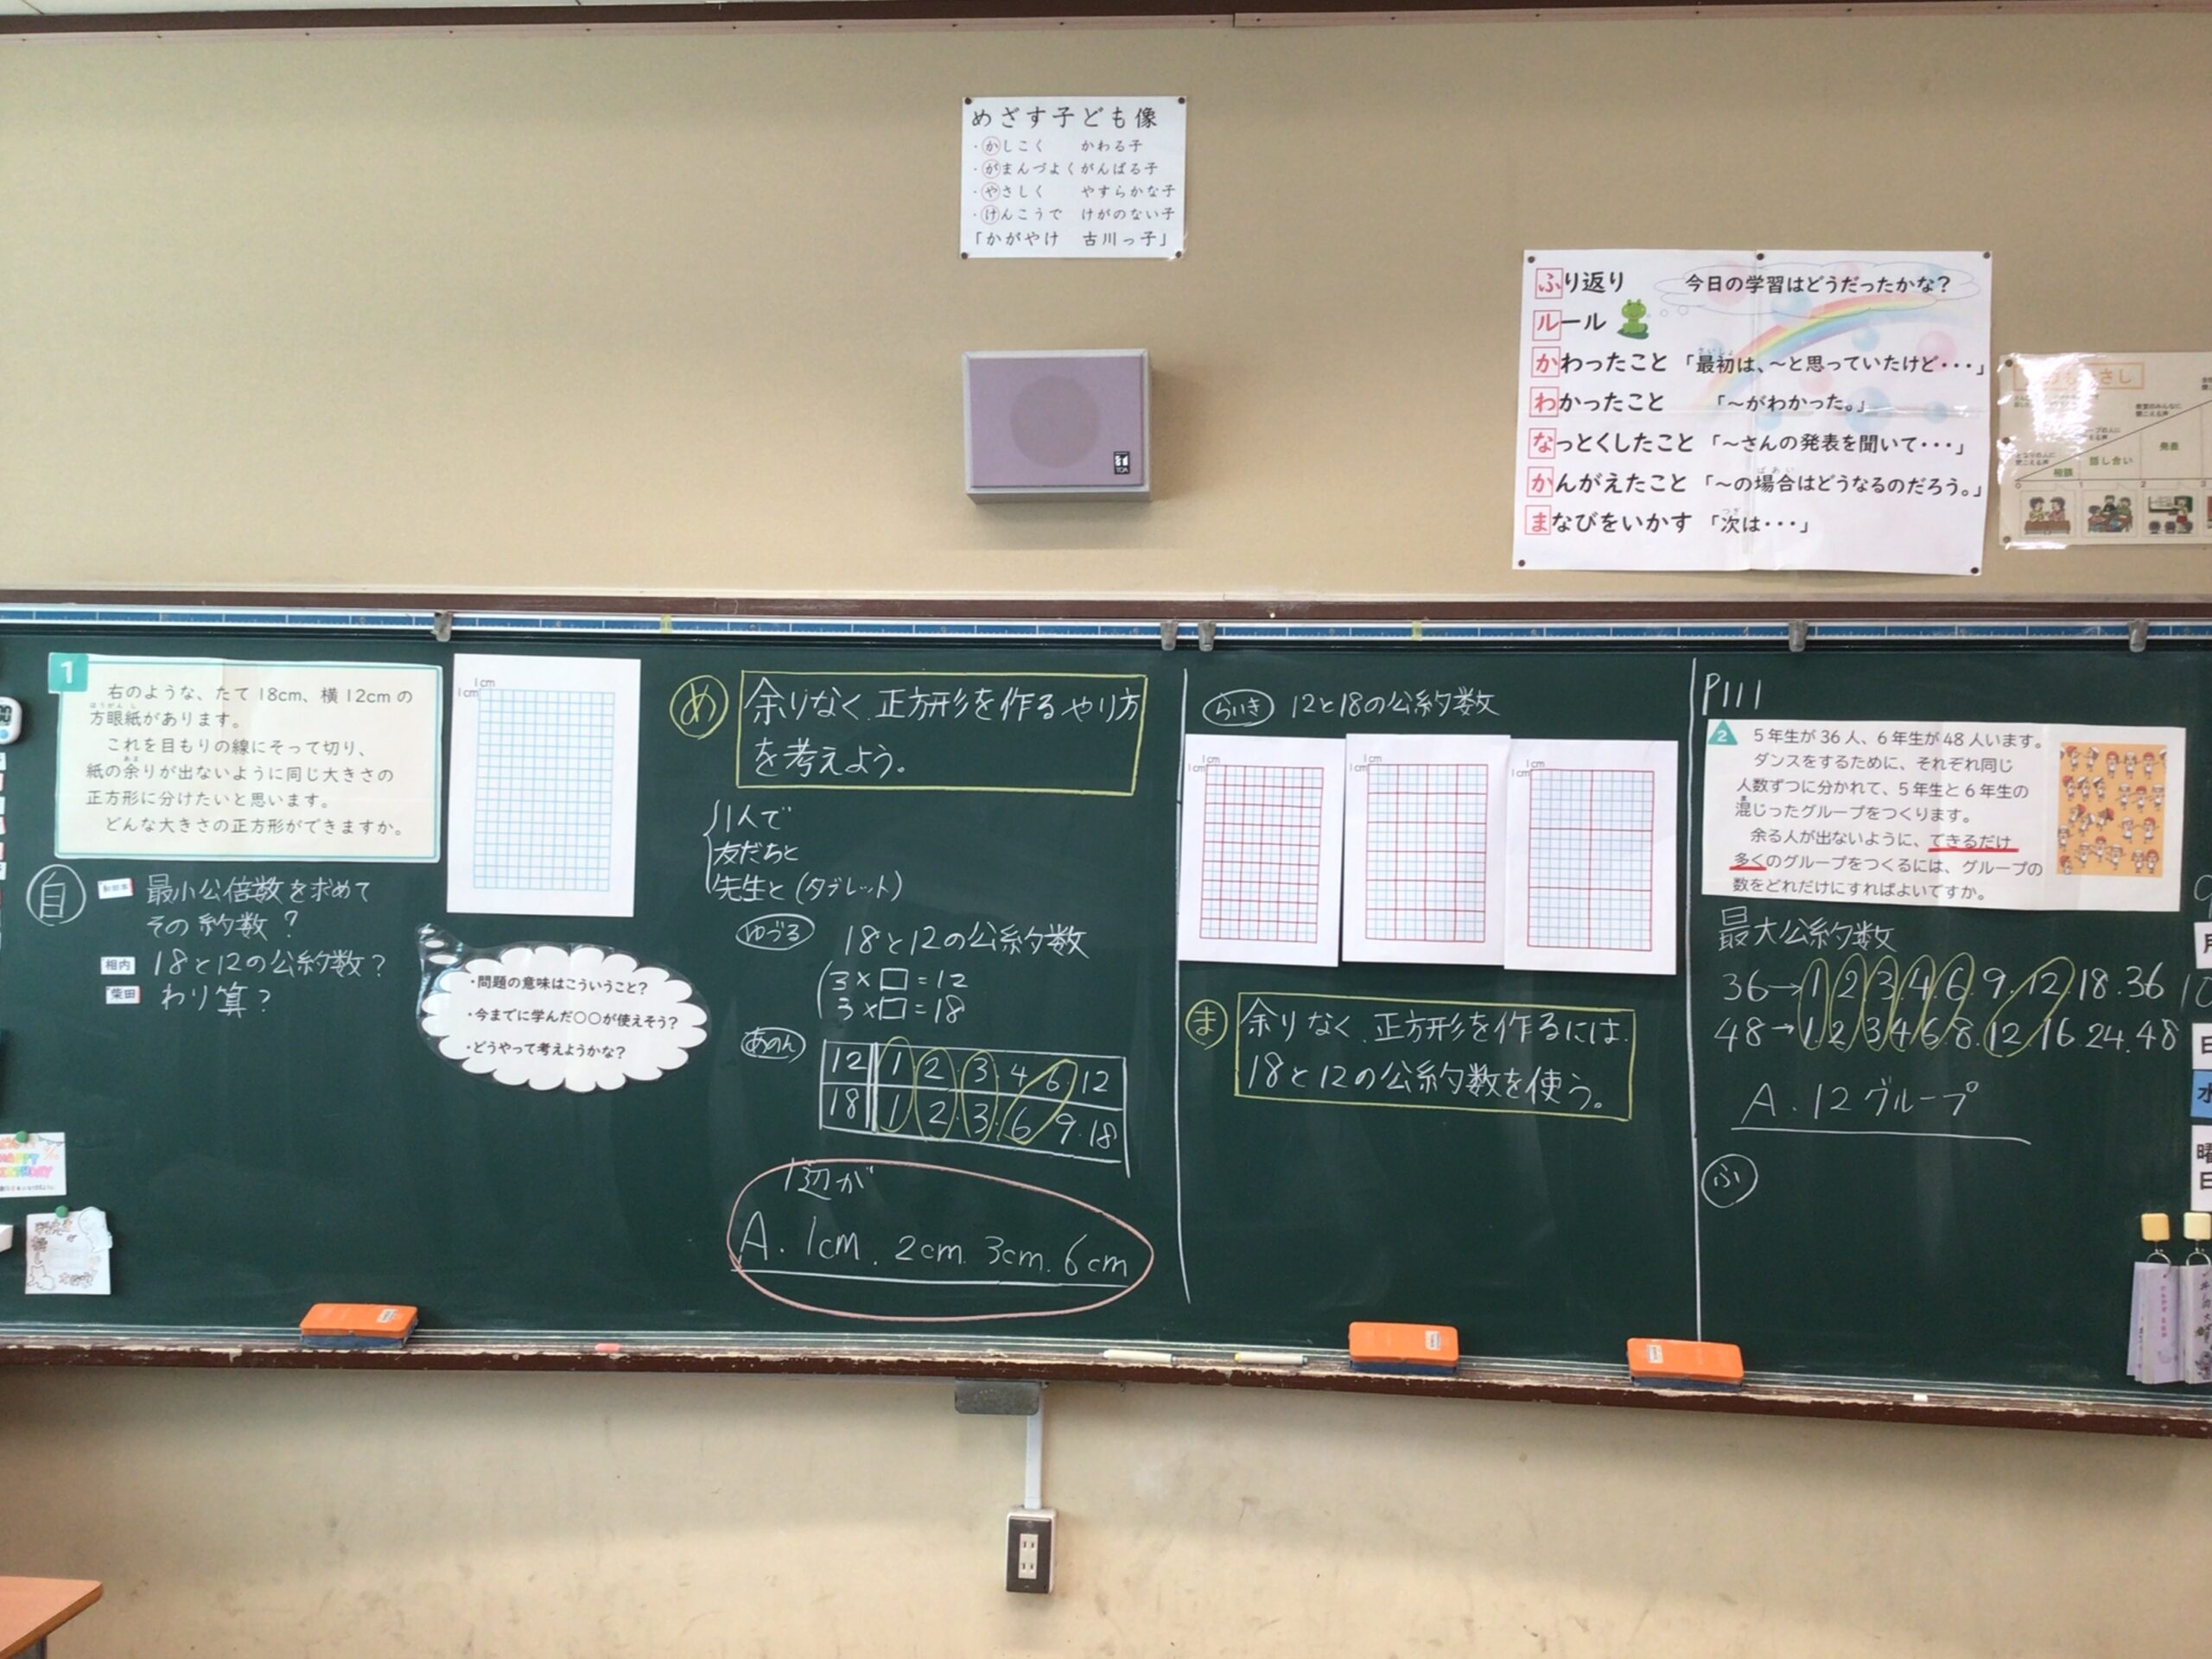 めざす子ども像
・かしこく　かわる子
・がまんづよくがんばる子
・やさしく　やすらかな子
・けんこうで　けがのない子
「かがやけ　古川っ子」
TOA
ふり返り　今日の学習はどうだったかな?
ルール
かわったこと「最初は、～と思っていたけど・・・」
わかったこと「～がわかった。」
なっとくしたこと「～さんの発表を聞いて・・・」
かんがえたこと「～の場合はどうなるのだろう。」
まなびをいかす「次は・・・」
相談
話し合い
発表
1
右のような、たて18cm、横12cmの
方眼紙があります。
これを目もりの線にそって切り、
紙の余りが出ないように同じ大きさの
正方形に分けたいと思います。
どんな大きさの正方形ができますか。
1cm
1cm
自
最小公倍数を求めて
その約数?
相内 18と12の公約数?
柴田 わり算?
・問題の意味はこういうこと?
・今までに学んだ○○が使えそう?
・どうやって考えようかな?
め 余りなく正方形を作るやり方
を考えよう。
1人で
友だちと
先生と(タブレット)
ゆづる 18と12の公約数
3×□=12
3×□=18
あのん
12 1 2. 3. 4. 6. 12
18 1. 2. 3. 6 9. 18
1辺が
A. 1cm. 2cm. 3cm. 6cm
らいき 12と18の公約数
1cm
1cm
1cm
1cm
1cm
1cm
ま 余りなく.正方形を作るには.
18と12の公約数を使う。
P111
2
5年生が36人、6年生が48人います。
ダンスをするために、それぞれ同じ
人数ずつに分かれて、5年生と6年生の
混じったグループをつくります。
余る人が出ないように、できるだけ
多くのグループをつくるには、グループの
数をどれだけにすればよいですか。
最大公約数
36→1.2.3.4.6.9.12.18.36
48→1.2.3.4.6.8.12.16.24.48
A. 12グループ
ふ
月
日
水
曜
日